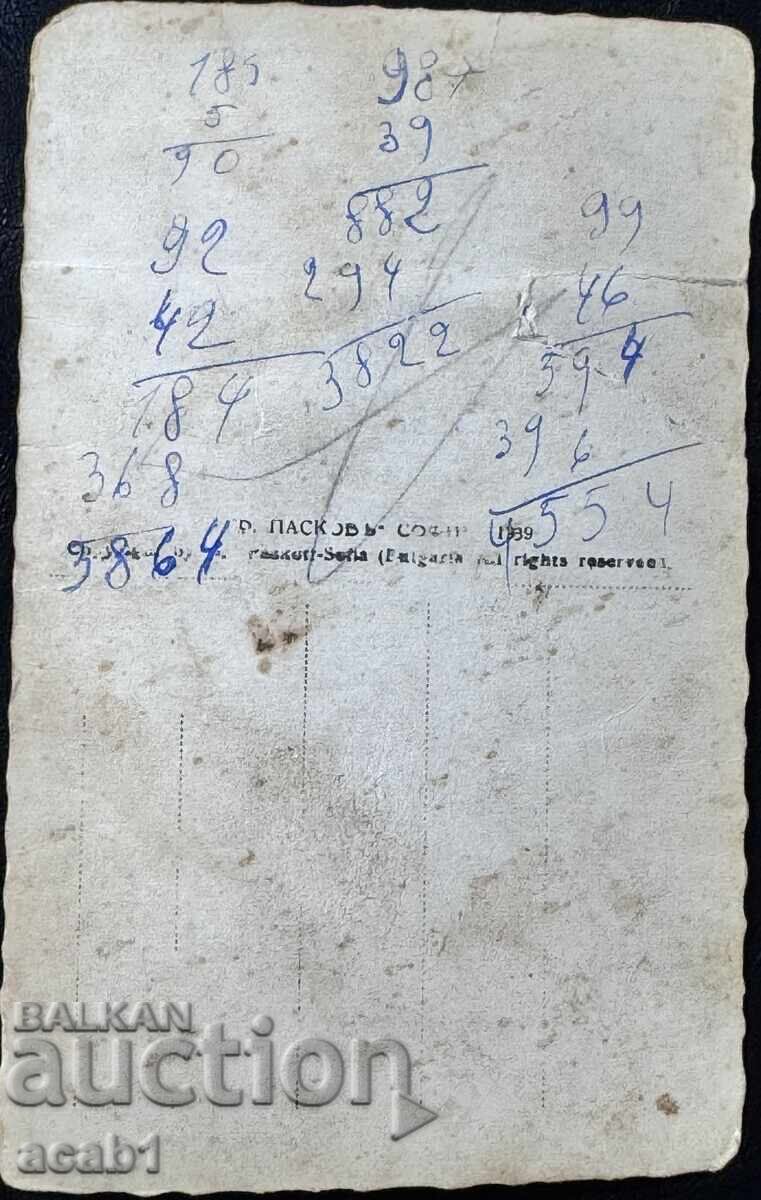 185
5
90
987
39
882
294
3822
92
42
184
368
3864
99
46
594
396
4554
Р. ПАСКОВЪ СОФИЯ 1939
Paskoff-Sofia (Bulgaria All rights reserved.
BALKAN
auction
acab1